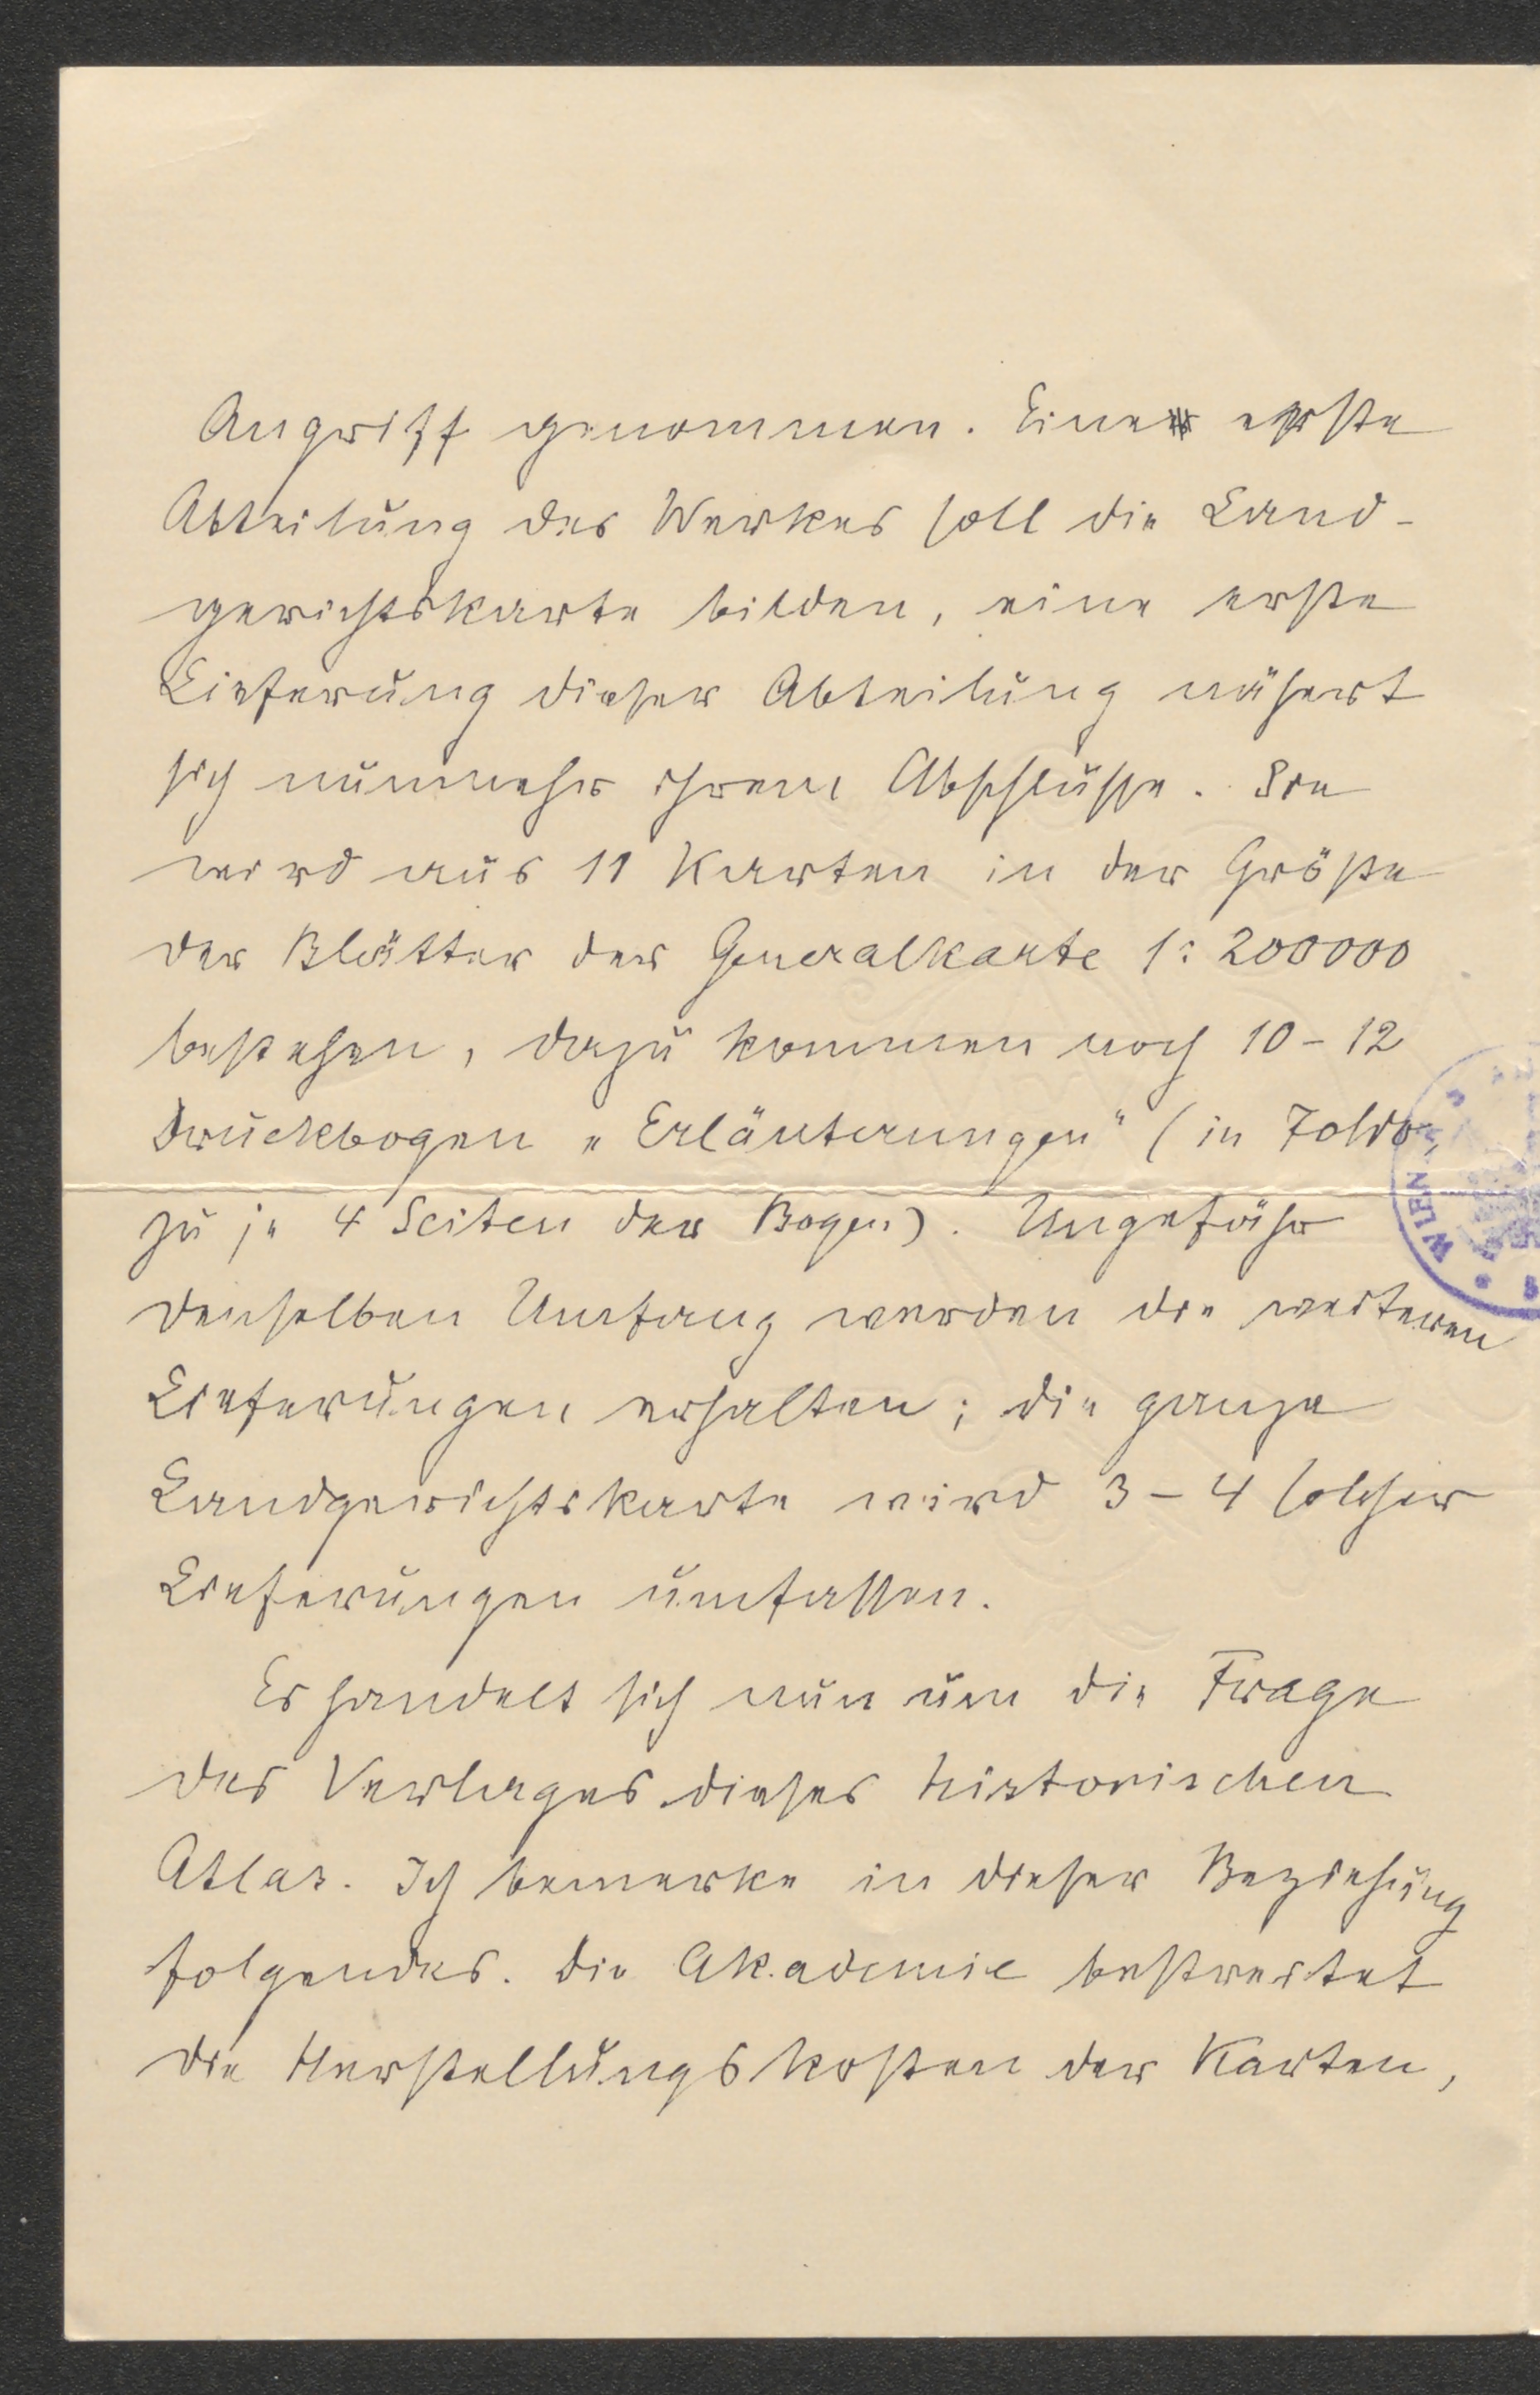 Angriff genommen. Eine erste
Abteilung des Werkes soll die Land-
gerichtskarte bilden, eine erste
Lieferung dieser Abteilung nähert
sich nunmehr ihrem Abschlusse. Sie
wird aus 11 Karten in der Größe
der Blätter der Generalkarte 1:200000
bestehen, dazu kommen noch 10-12
Druckbogen „Erläuterungen" (in Folio,
zu je 4 Seiten der Bogen). Ungefähr
denselben Umfang werden die weiteren
Lieferungen erhalten; die ganze
Landgerichtskarte wird 3-4 solcher
Lieferungen umfassen.
Es handelt sich nun um die Frage
des Verlages dieses historischen
Atlas. Ich bemerke in dieser Beziehung
folgendes. Die Akademie bestreitet
die Herstellungskosten der Karten,
WIEN